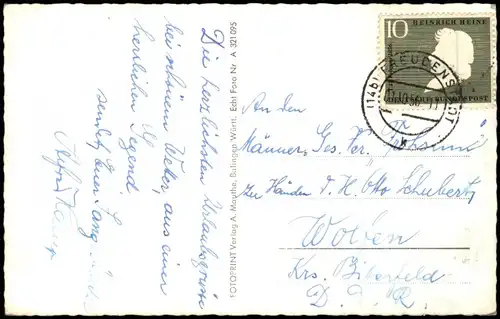 Die herzlichsten Urlaubsgrüße
bei schönem Wetter aus einer
herrlichen Gegend
sendet Euer
FOTOPRINT Verlag A. Mauthe, Balingen Württ. Echt Foto Nr. A 321095
10
HEINRICH HEINE
DEUTSCHE BUNDESPOST
(14b) FREUDENSTADT
An den
Männer Ges. Ver. Frohsinn
zu Händen d. H. Otto Schubert
Wolfen
Krs. Bitterfeld
D. D. R.